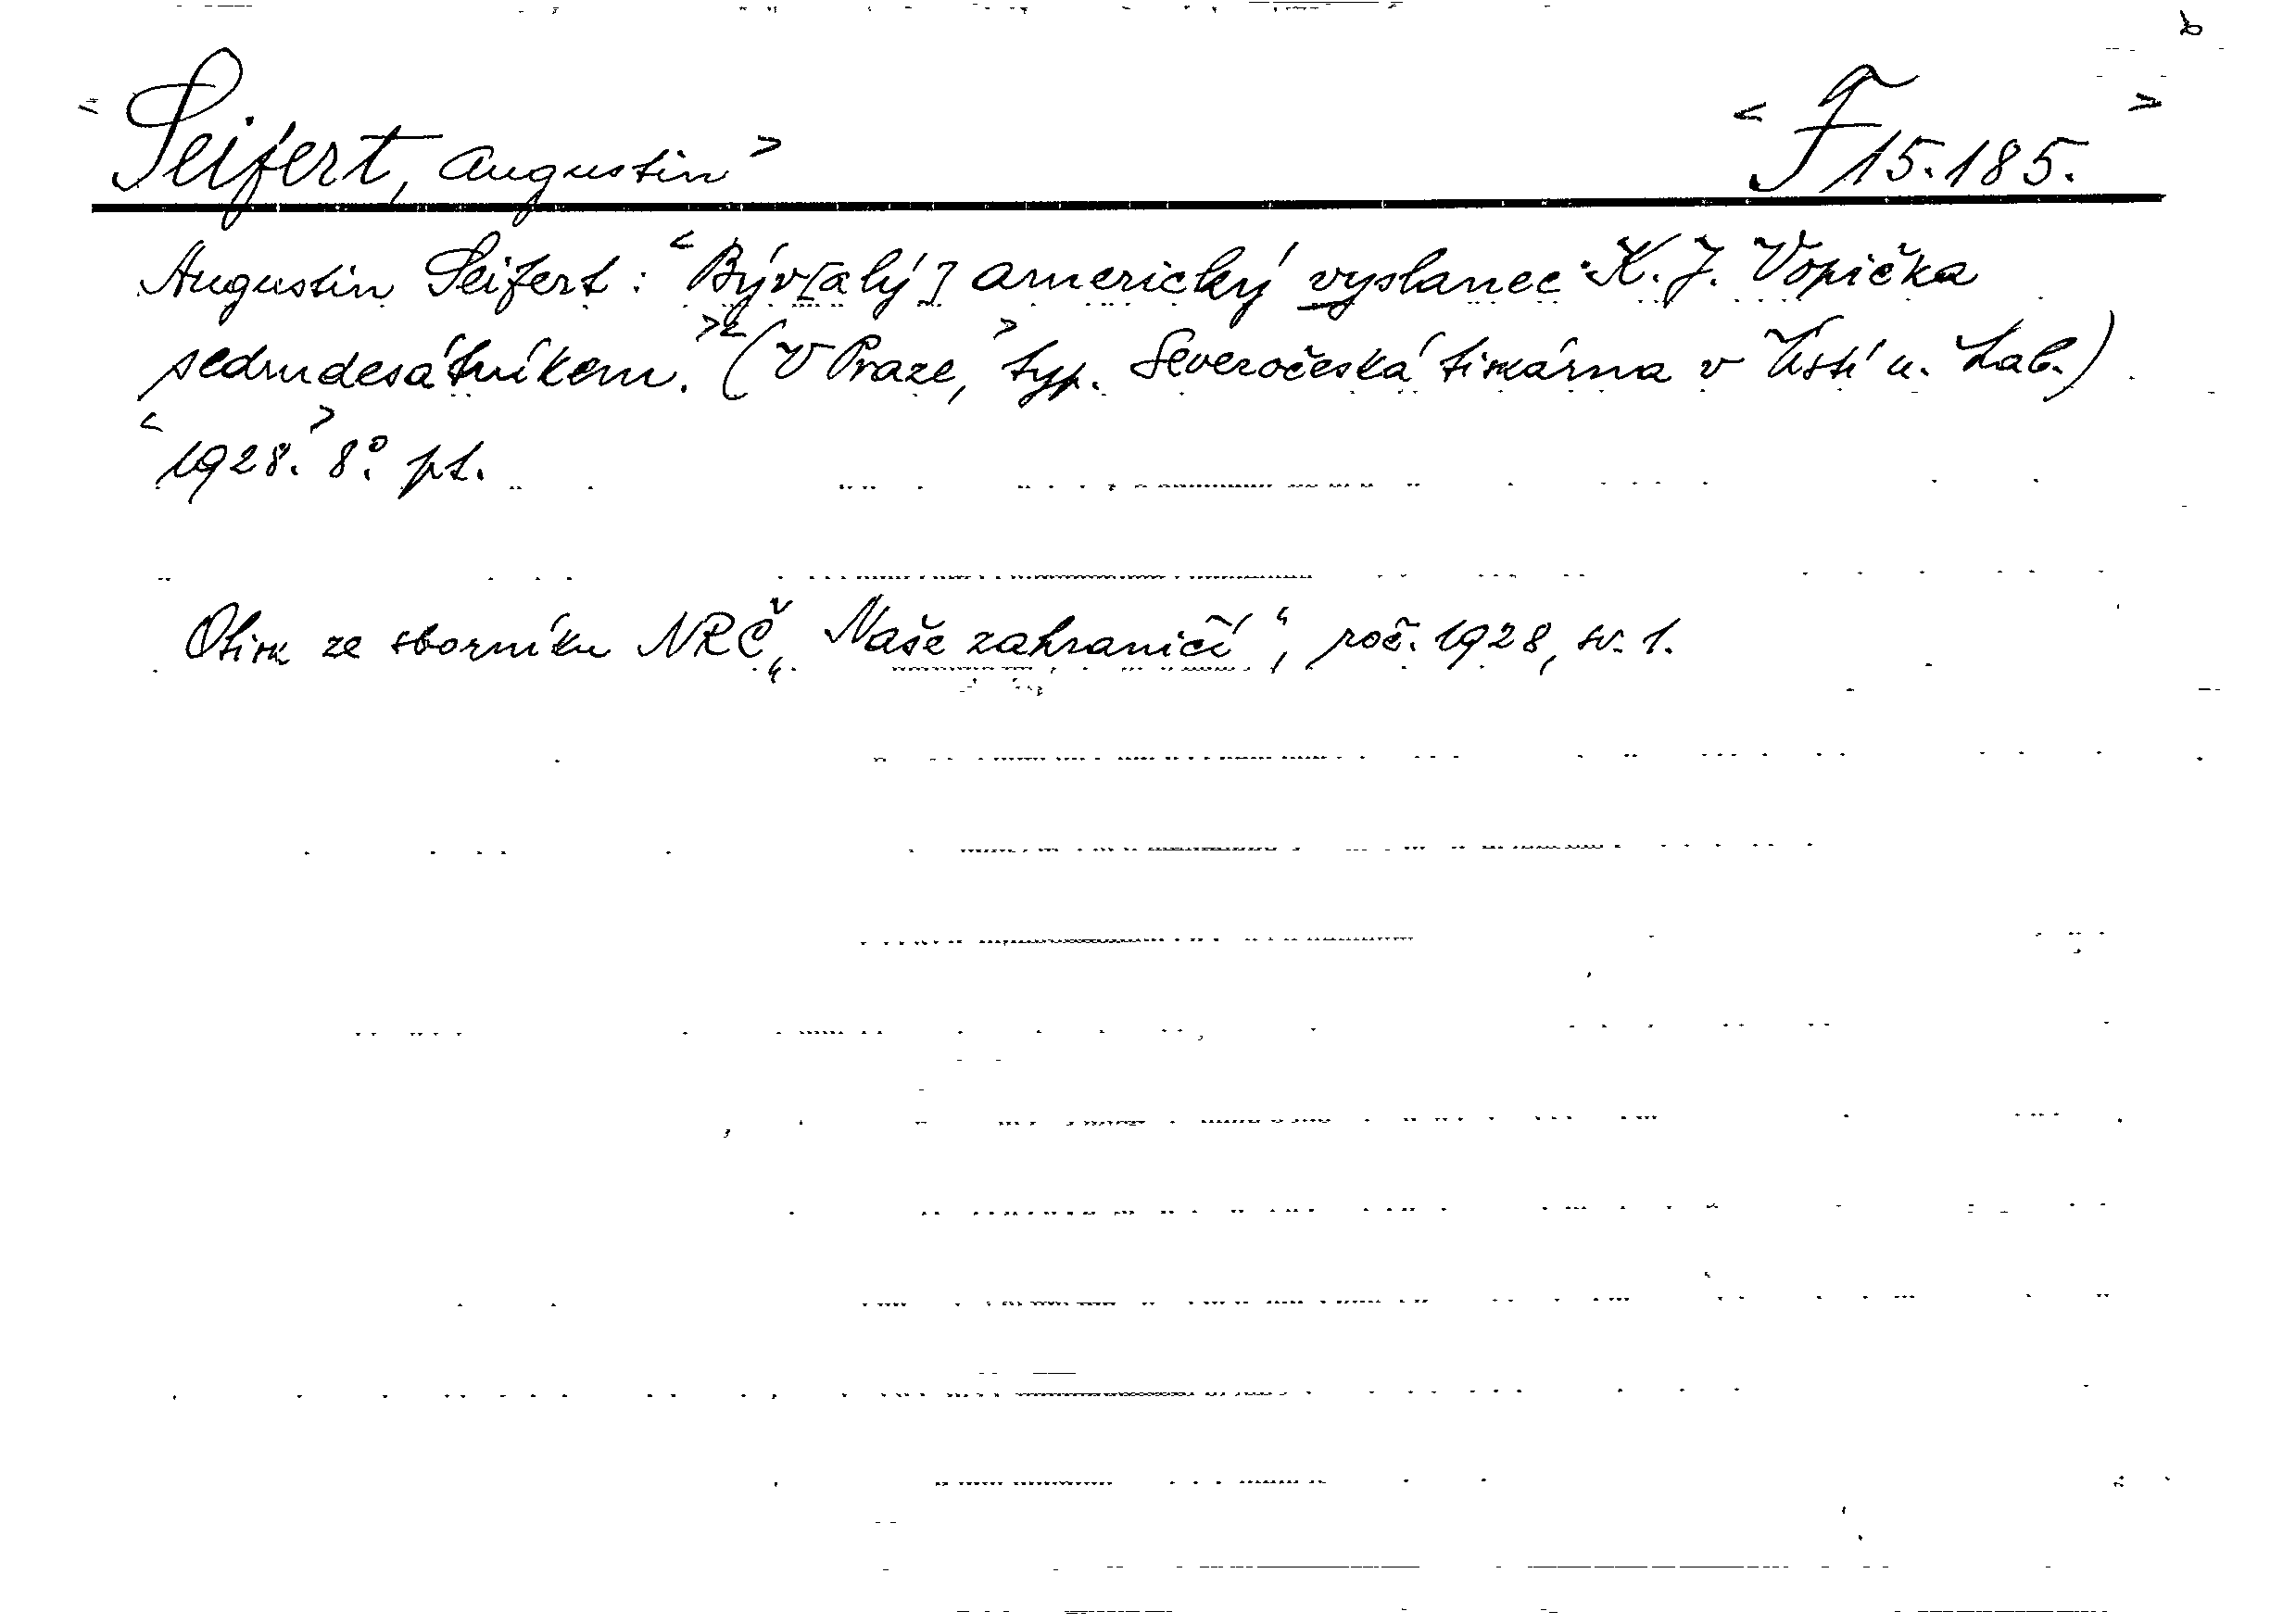 b
<Seifert, Augustin> <F 15.185.>
Augustin Seifert: <Býv[alý] americký vyslanec K. J. Vopička
sedmdesátníkem.> <(V Praze,> typ. Severočeská tiskárna v Ústí n. Lab.)
<1928.> 8°. pt.
Otisk ze sborníku NRČ „Naše zahraničí“, roč. 1928, sv. 1.